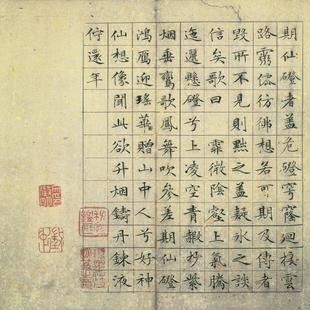 期仙磴者蓋危磴穹窿迴接雲
路靈僊彷彿想若可期及儒者
毀所不見則黜之蓋疑氷之談
信矣歌曰 霏微陰壑上氣騰
迤邐懸磴兮上凌空青霞杪紫
烟垂鸞歌鳳舞吹參差期仙磴
鴻駕迎瑤華贈山中人兮好神
仙想像聞此欲升烟鑄丹鍊液
佇還年